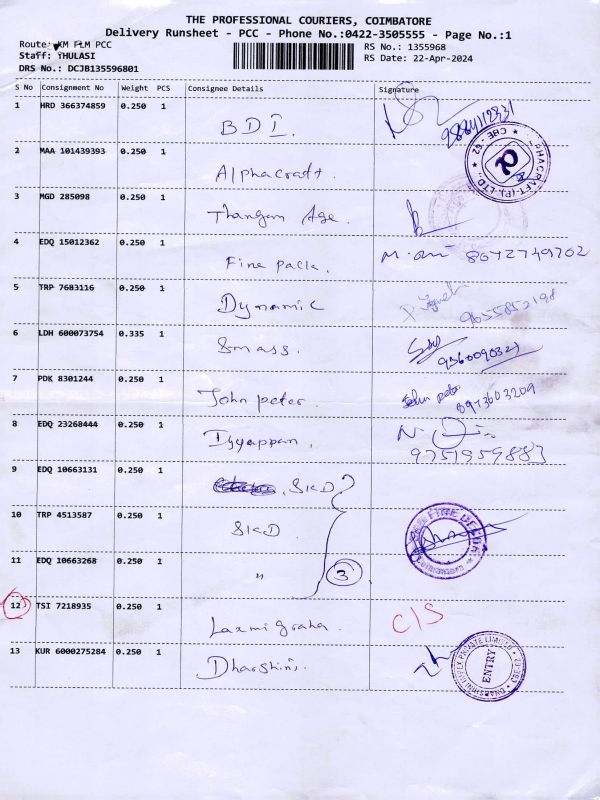 THE PROFESSIONAL COURIERS, COIMBATORE
Delivery Runsheet - PCC - Phone No.:0422-3505555 - Page No.:1
Route: KM FLM PCC
RS No.: 1355968
Staff: THULASI
RS Date: 22-Apr-2024
DRS No.: DCJB135596801
S No Consignment No Weight PCS Consignee Details Signature
1 HRD 366374859 0.250 1 BDI.
2 MAA 101439393 0.250 1 Alphacraft.
3 MGD 285098 0.250 1 Thangam Age.
4 EDQ 15012362 0.250 1 Fine pack. 8072749702
5 TRP 7683116 0.250 1 Dynamic 9655852198
6 LDH 600073754 0.335 1 Smass. 9360090327
7 PDK 8301244 0.250 1 John peter. John peter 8973603209
8 EDQ 23268444 0.250 1 Iyyappan. 9751959883
9 EDQ 10663131 0.250 1 SKD
10 TRP 4513587 0.250 1 SKD
11 EDQ 10663268 0.250 1 " 3
12 TSI 7218935 0.250 1 Laxmi graha. C/S
13 KUR 6000275284 0.250 1 Dharshini.
ENTRY